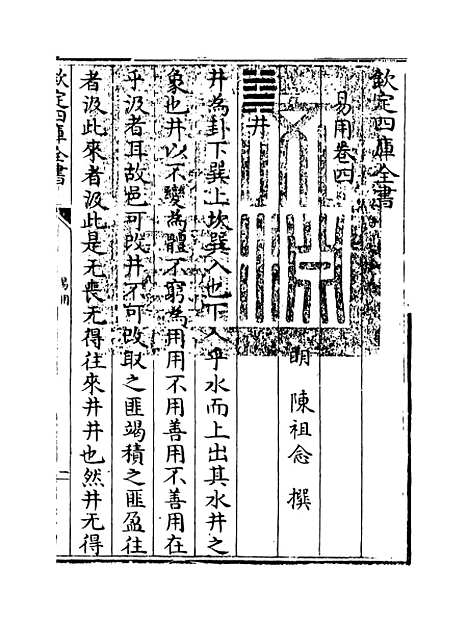 欽定四庫全書
易用卷四
明 陳祖念 撰
䷯井
井為卦下巽上坎巽入也下入乎水而上出其水井之
象也井以不變為體不窮為用用不用善用不善用在
乎汲者耳故邑可改井不可改取之匪竭積之匪盈往
者汲此來者汲此是无喪无得往來井井也然井无得
欽定四庫全書
易用
一